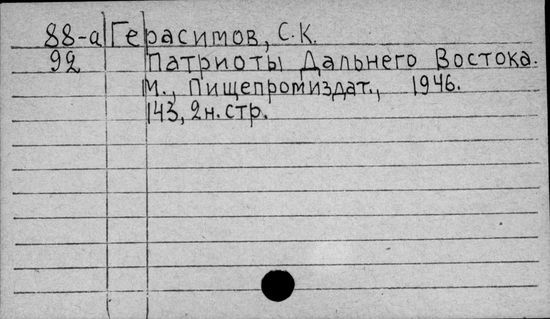 88-а Герасимов, С.К.
92 Патриоты Дальнего Востока.
М., Пищепромиздат., 1946.
143, 2н.стр.